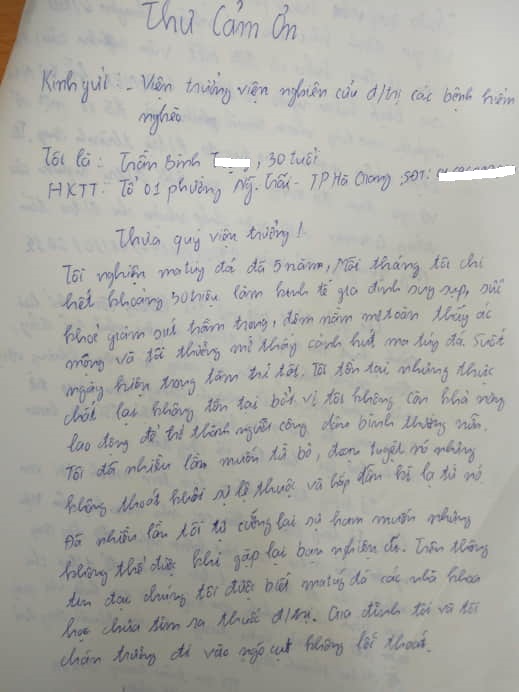 Thư Cảm Ơn
Kính gửi: - Viện trưởng viện nghiên cứu đ/trị các bệnh hiểm
nghèo
Tôi là: Trần Bình , 30 tuổi
HKTT: Tổ 01 phường Ng. Trãi - TP Hà Giang, SĐT:
Thưa quý viện trưởng!
Tôi nghiện ma túy đá đã 5 năm, Mỗi tháng tôi chi
hết khoảng 30 triệu làm kinh tế gia đình suy sụp, sức
khoẻ giảm sút trầm trọng, đêm nằm mơ toàn thấy ác
mộng và tôi thường mơ thấy cảnh hút ma túy đá. Suốt
ngày hiện trong tâm trí tôi. Tôi tồn tại nhưng thực
chất lại không tồn tại bởi vì tôi không còn khả năng
lao động để trở thành người công dân bình thường nữa.
Tôi đã nhiều lần muốn từ bỏ, đoạn tuyệt nó nhưng
không thoát khỏi sự lệ thuộc và hấp dẫn kì lạ từ nó
Đã nhiều lần tôi tự cưỡng lại sự ham muốn nhưng
không thể được khi gặp lại bạn nghiện đá. Trên thông
tin đại chúng tôi được biết ma túy đá các nhà khoa
học chưa tìm ra thuốc đ/trị. Gia đình tôi và tôi
chán trường đi vào ngõ cụt không lối thoát.